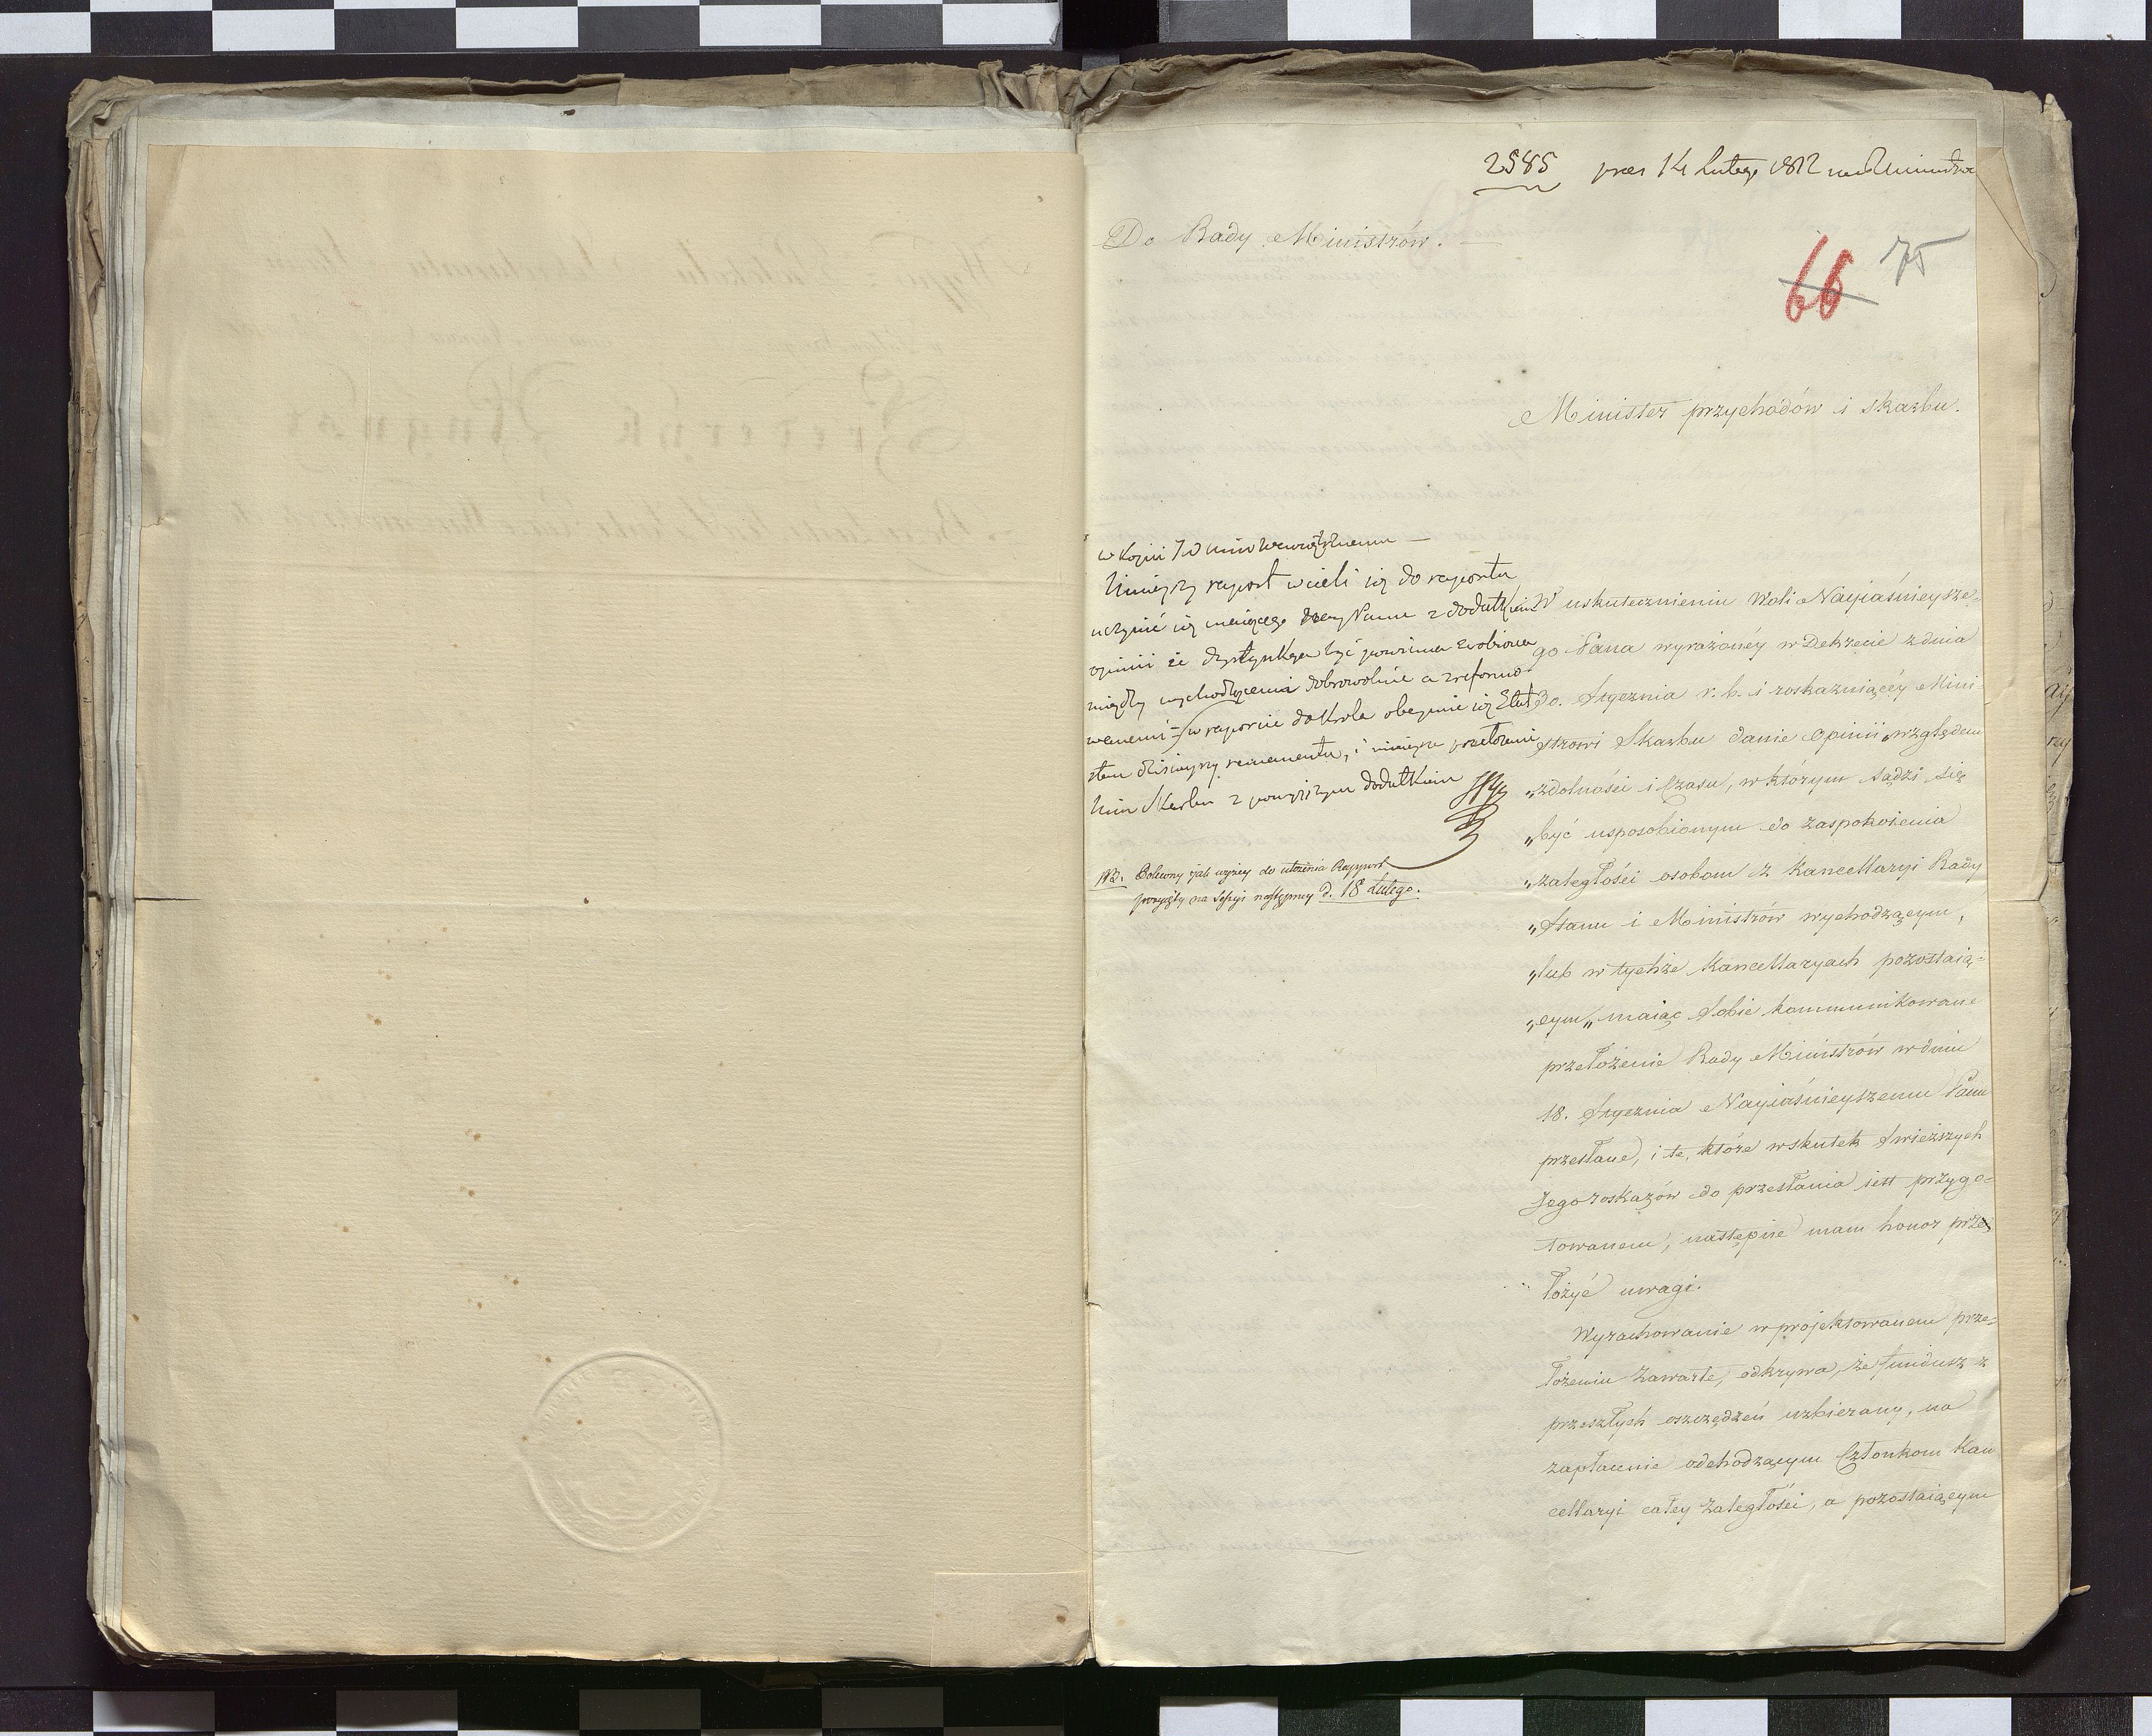 2585 pres 14 Lutego 1812
Do Rady Ministrów.
66 75
Minister przychodów i skarbu.
Ninieyszy raport wcieli się do raportu
uczynić się maiącego Panu z dodatkiem
opinii że dystynkcya być powinna zrobiona
między wychodzącemi dobrowolnie a zreformo-
wanemi w raporcie do Króla obeymie się Etat
stan dzisieyszy remanentu, i ninieysze przełożenie
Min Skarbu z powyższym dodatkiem
NB. jak wyżey do ułożenia Rapport
przyięty na Sessyi następney d. 18 Lutego.
W uskutecznieniu Woli Nayiaśnieysze-
go Pana wyrażonéy w Dekrecie z dnia
30. Stycznia r. b. i roskazuiącéy Mini-
strowi Skarbu danie Opinii „względem
„zdolności i Czasu, w którym sądzi się
„być usposobionym do zaspokoienia
„zaległości osobom z Kancellaryi Rady
„Stanu i Ministrów wychodzącym,
„lub w tychże Kancellaryach pozostaią-
„cym„ maiąc Sobie kommunikowane
przełożenie Rady Ministrów w dniu
18. Stycznia Nayiaśnieyszemu Panu
przesłane, i te, które wskutek świeższych
Jego roskazów do przesłania iest przygo-
towanem, następne mam honor prze
łożyć uwagi.
Wyrachowanie w projektowanem prze-
łożeniu zawarte, odkrywa, że fundusz z
przeszłych oszczędzeń uzbierany, na
zapłacenie odchodzącym Członkom Kan
cellaryi całey zaległości, a pozostaiącym